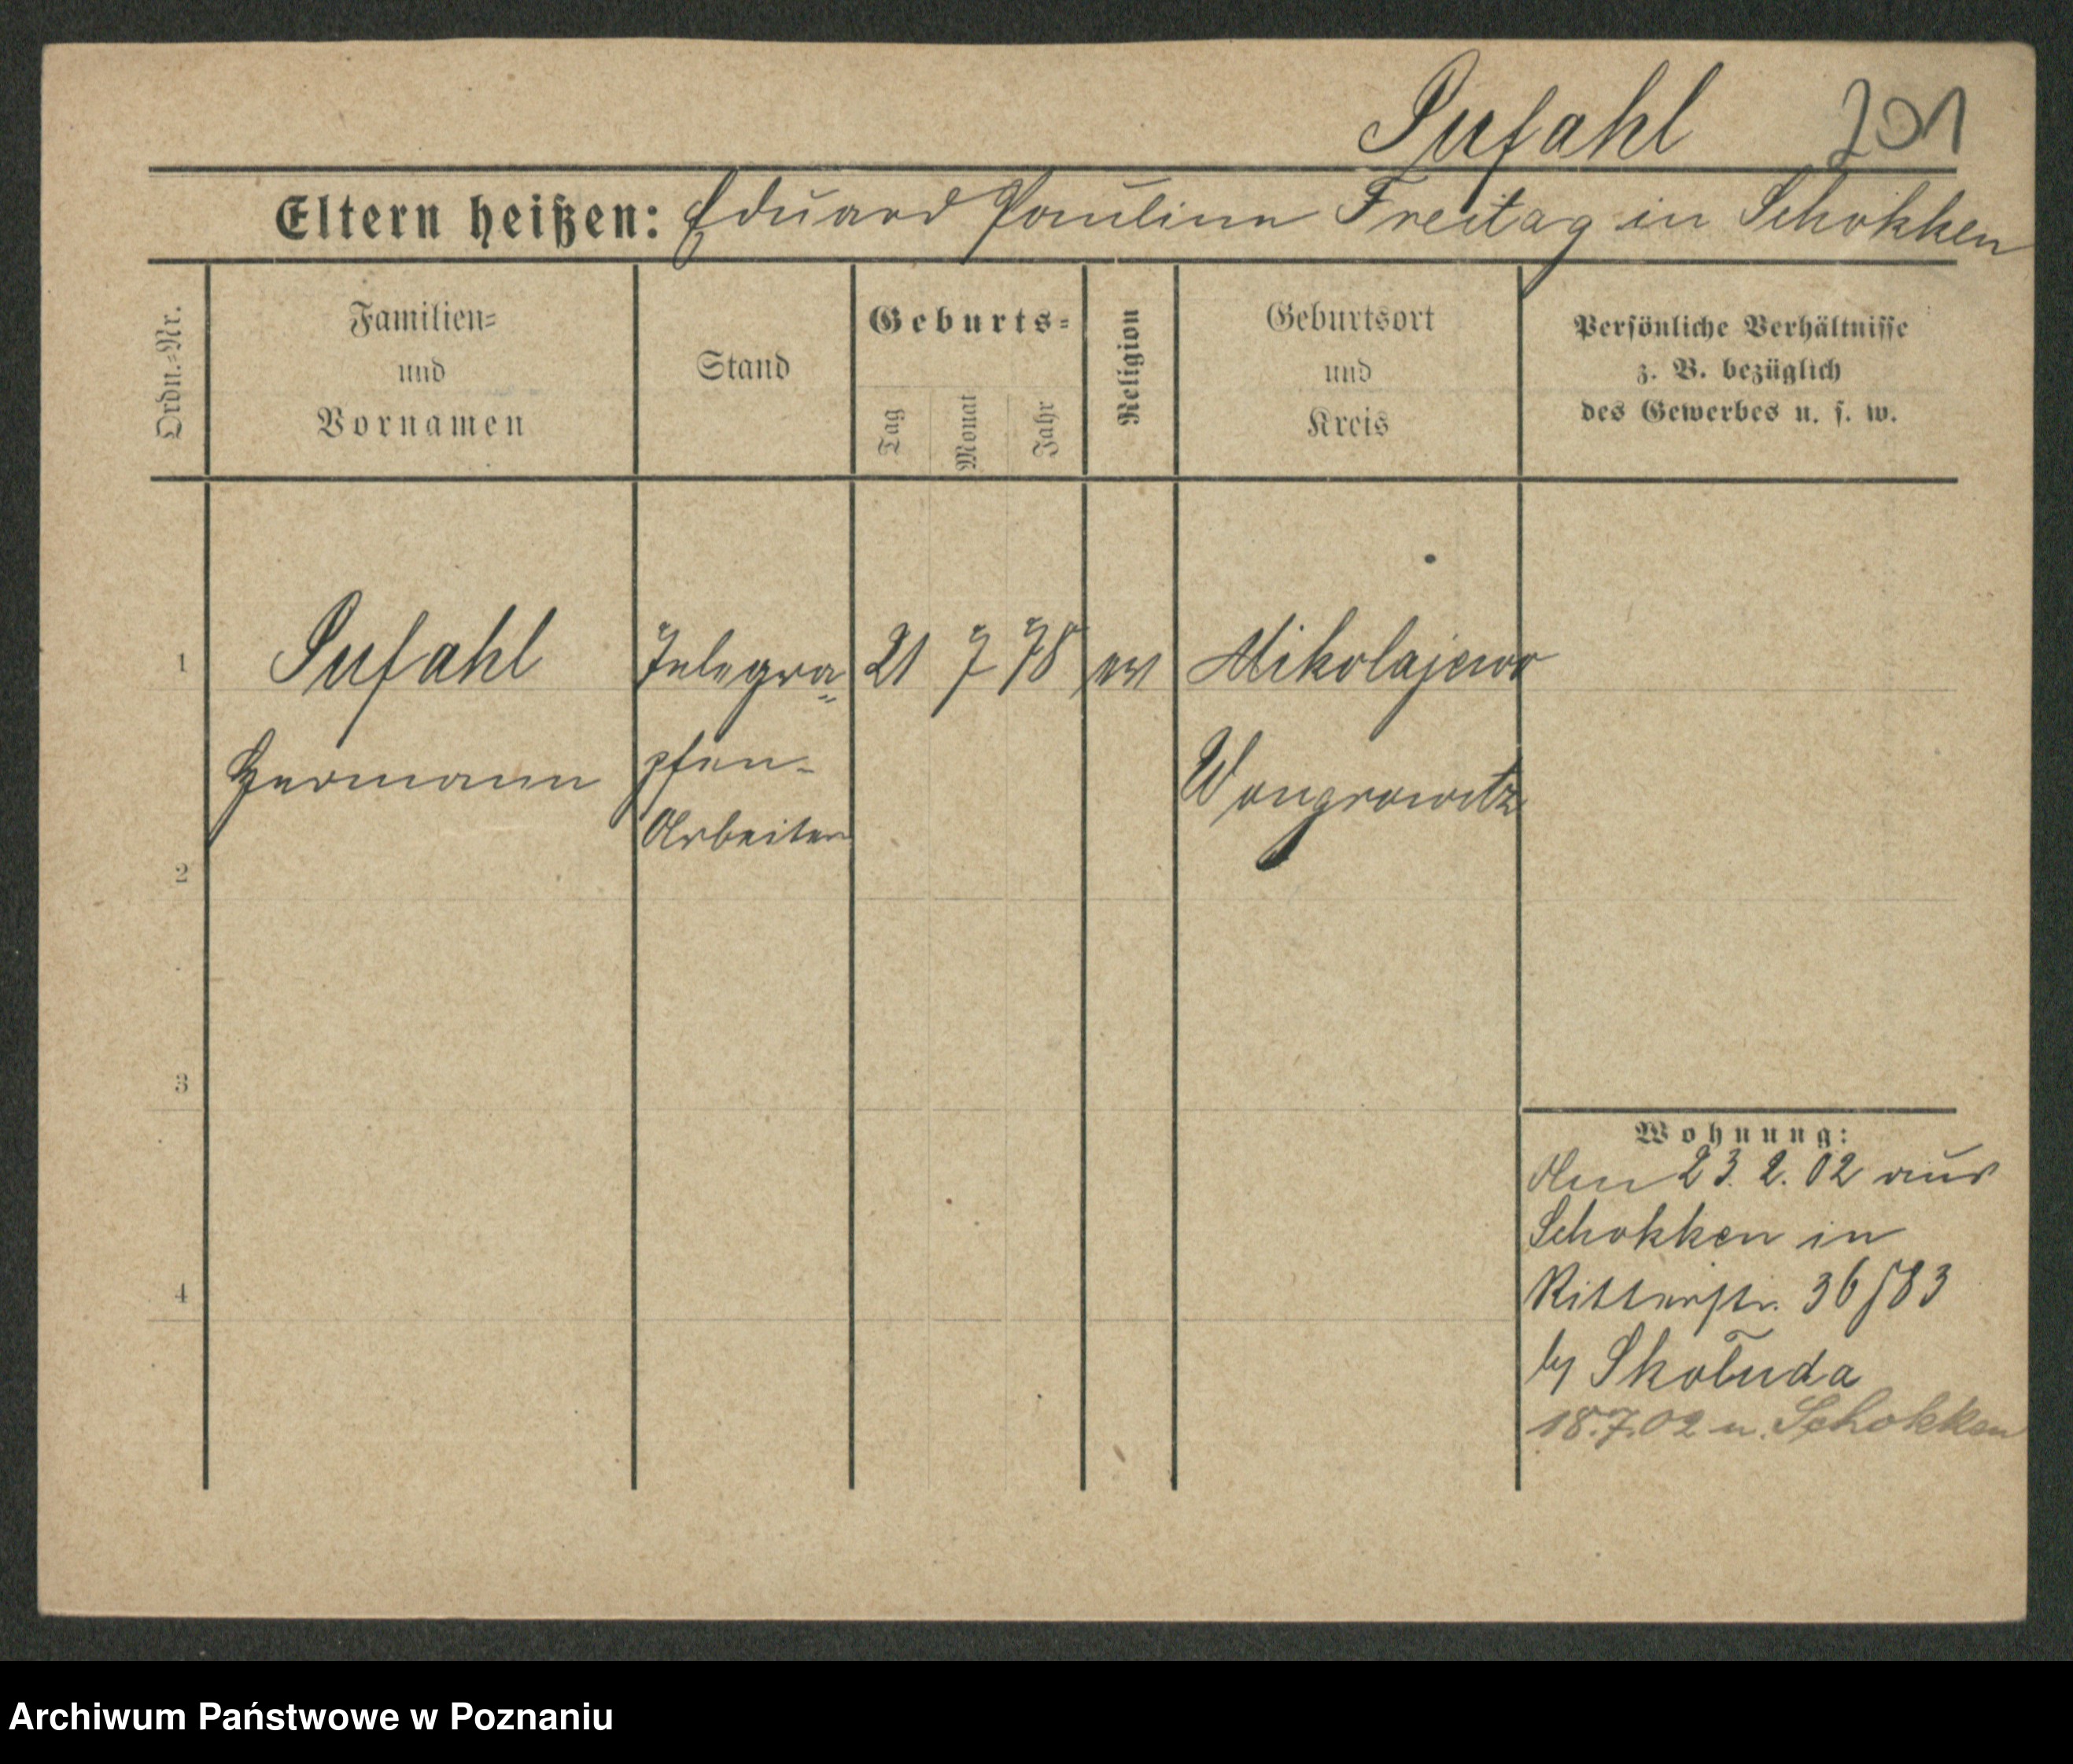 Pufahl 201
Eltern heißen: Eduard Pauline Freitag in Schokken
Ordn.=Nr.
Familien=
und
Vornamen
Stand
Geburts=
Tag
Monat
Jahr
Religion
Geburtsort
und
Kreis
Persönliche Verhältnisse
z. B. bezüglich
des Gewerbes u. s. w.
1 Pufahl Telegra= 21 7 78 ev Mikolajewo
Hermann phen- Wongrowitz
Arbeiter
2
3
4
Wohnung:
Den 23. 2. 02 aus
Schokken in
Ritterstr. 36/83
by Skoluda
18.7.02 n. Schokken
Archiwum Państwowe w Poznaniu